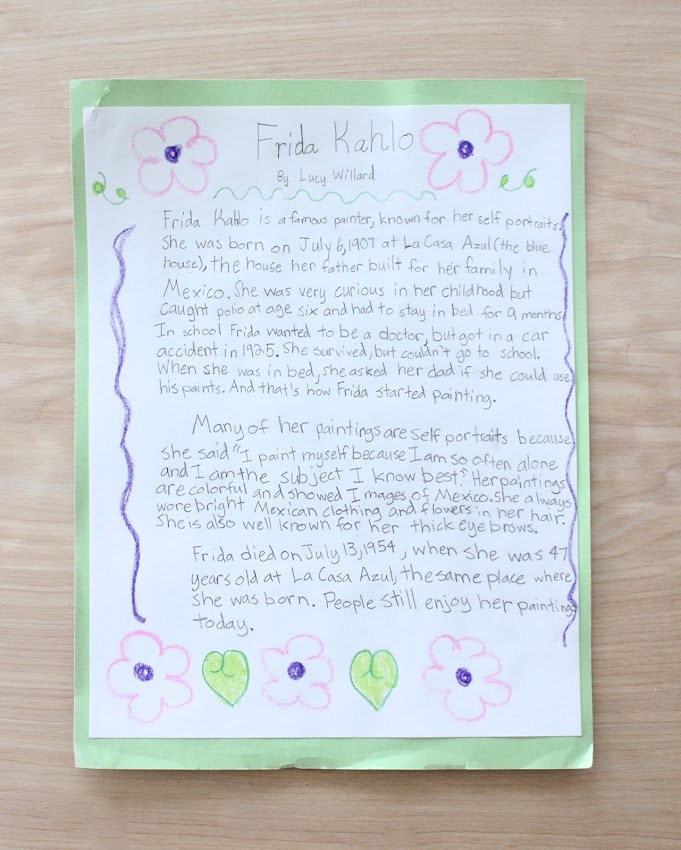 Frida Kahlo
By Lucy Willard
Frida Kahlo is a famous painter, known for her self portraits.
She was born on July 6, 1907 at La Casa Azul (the blue
house), the house her father built for her family in
Mexico. She was very curious in her childhood but
caught polio at age six and had to stay in bed for 9 months.
In school Frida wanted to be a doctor, but got in a car
accident in 1925. She survived, but couldn't go to school.
When she was in bed, she asked her dad if she could use
his paints. And that's how Frida started painting.
Many of her paintings are self portraits because
she said "I paint myself because I am so often alone
and I am the subject I know best." Her paintings
are colorful and showed Images of Mexico. She always
wore bright Mexican clothing and flowers in her hair.
She is also well known for her thick eye brows.
Frida died on July 13, 1954, when she was 47
years old at La Casa Azul, the same place where
she was born. People still enjoy her paintings
today.